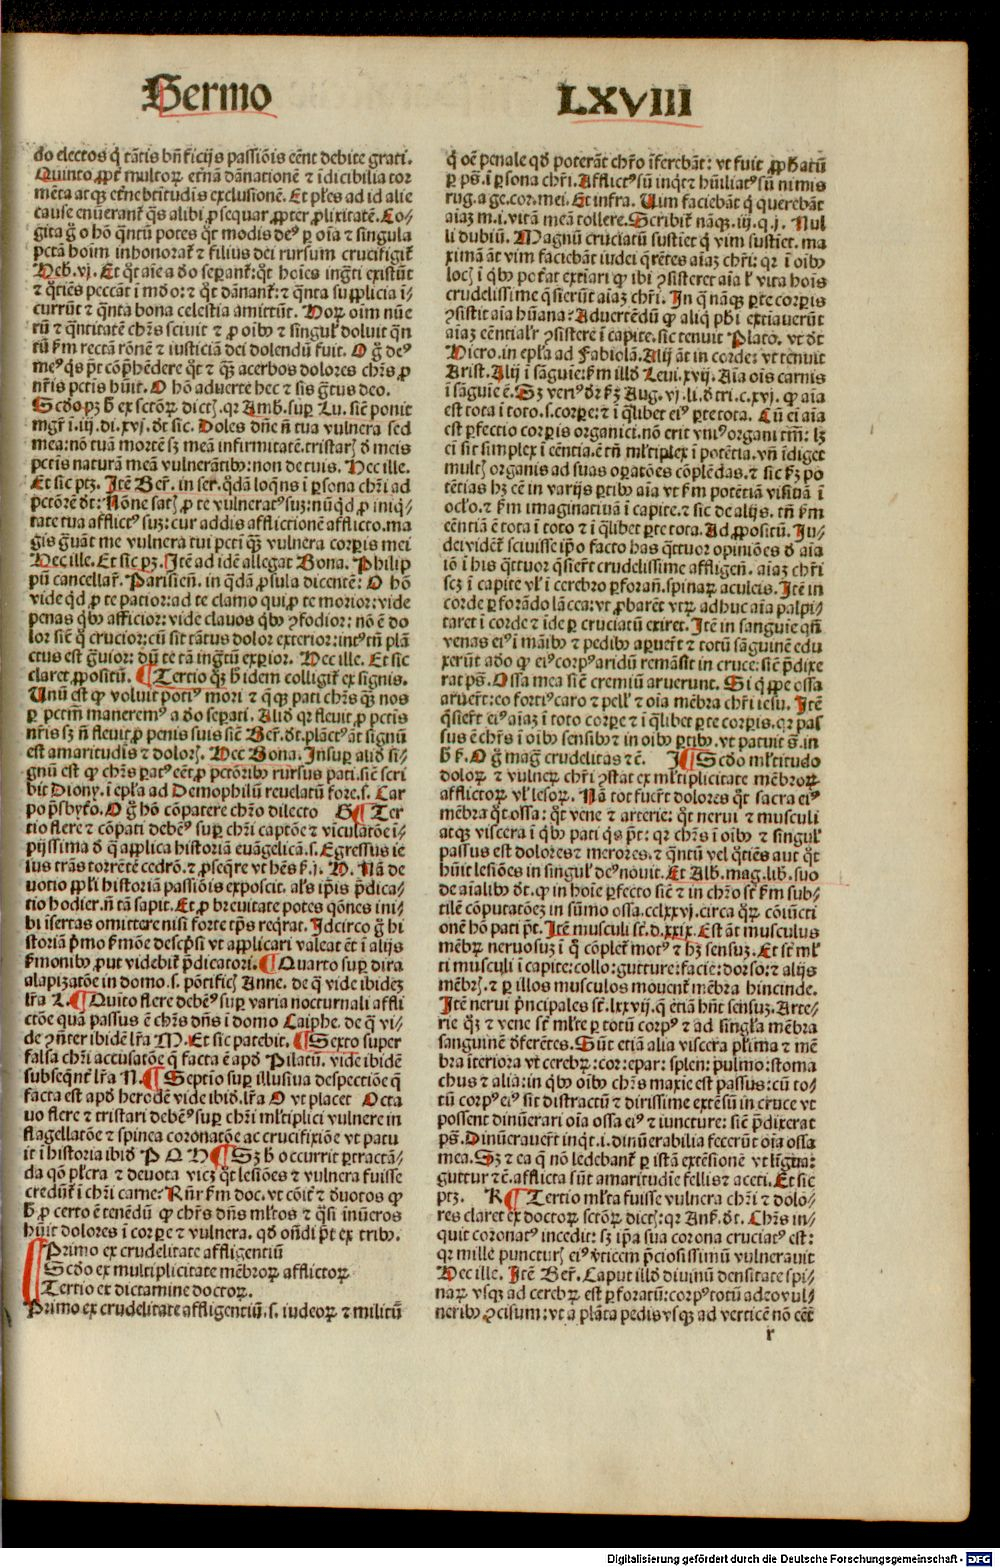 Sermo
LXVIII
do electos q̄ tātis bn̄ficijs passiōis eēnt debite grati.
Quinto ꝓpt̄ multoꝝ etnā dānationē ⁊ īdicibilia tor
mēta atqꝫ etne btītudīs exclusionē. Et ples ad id alie
cause enūerant̄ q̄s alibi ꝓsequar ꝓpter ꝓlixitatē. Co⸗
gita ḡ o hō qn̄tū potes qt̄ modis deꝰ ꝑ oīa ⁊ singula
pctā hoīm inhonorat̄ ⁊ filius dei rursum crucifigit̄
Heb. vj. Et qt̄ aīe a do seꝑant̄: qt̄ hoīes ingti existūt
⁊ qtiēs peccāt ī mdo: ⁊ qt̄ dānant̄: ⁊ qn̄ta supplicia ī⸗
currūt ⁊ qn̄ta bona celestia amittūt. Hoꝝ oīm nūe
rū ⁊ qn̄titatē chrs sciuit ⁊ ꝓ oībꝰ ⁊ singulꝭ doluit qn̄
tū fm rectā rōnē ⁊ iusticiā dei dolendū fuit. O ḡ deꝰ
meꝰ qs pt̄ cōphēdere qt̄ ⁊ qꝫ acerbos dolores chrs ꝓ
nr̄is pctis hūit. O hō aduerte hec ⁊ sis gtus deo.
Scdo pꝫ h̄ ex sctoꝝ dictꝭ. qr Amb. suꝑ Lu. siē ponit
mgr̄ ī. iij. di. xvj. dt̄ sic. Doles dn̄e n̄ tua vulnera sed
mea: nō tuā mortē sꝫ meā infirmitatē. tristarꝭ d̄ meis
pctis naturā meā vulnerātibꝰ: non de tuis. Hec ille.
Et sic ptꝫ. Itē Ber. in ser. qdā loqns ī ꝑsona chri ad
pctōrē dt̄: Nōne satꝭ ꝓ te vulneratꝰ suꝫ: nūqd ꝓ iniq⸗
tate tua afflictꝰ suꝫ: cur addis afflictionē afflicto. ma
gis gūāt me vulnera tui pcti qꝫ vulnera corꝑis mei
Hec ille. Et sic pꝫ. Itē ad idē allegat Bona. Philip
pū cancellar̄. Parisien̄. in qdā ꝓsula dicentē: O hō
vide qd ꝓ te patior: ad te clamo qui ꝓ te morior: vide
penas qbꝰ afficior: vide clauos qbꝰ ꝯfodior: nō ē do
lor siē q̄ crucior: cū sit tātus dolor exterior: intꝰ tn̄ plā
ctus est guior: dū te tā ingtū exꝑior. Hec ille. Et sic
claret ꝓpositū. ¶ Tertio qꝫ h̄ idem colligit̄ ex signis.
Unū est ꝙ voluit potiꝰ mori ⁊ qꝫ pati chrs qꝫ nos
ꝑ pctm̄ maneremꝰ a do seꝑati. Aliđ qr fleuit ꝓ pctis
nr̄is sꝫ n̄ fleuit ꝓ penis suis siē Ber. dt̄. plāctꝰ āt signū
est amaritudis ⁊ dolorꝭ. Hec Bona. Insuꝑ aliđ si⸗
gnū est ꝙ chrs patꝰ eēt ꝓ pctōribꝰ rursus pati. siē scri
bit Diony. ī epla ad Demophilū reuelatū fore. s. Car
po psbyto. O ḡ hō cōpatere chro dilecto G ¶ Ter
tio flere ⁊ cōpati debēꝰ suꝑ chri captōe ⁊ viculatōe ī⸗
pijssima d̄ q̄ applica historiā euāgelicā. s. Egressus ie
sus trās torrētē cedrō. ⁊ ꝓseqre vt hēs s̄. ĩ. H. Nā de
uotio ppli historiā passiōis exposcit. als ipis p̄dica⸗
tio hodier. n̄ tā sapit. Et ꝓ breuitate potes qōnes ini⸗
bi īsertas omittere nisi forte tps reqrat. Idcirco ḡ hi
storiā pmo s̄mōe descpsi vt applicari valeat etī alijs
s̄monibꝰ ꝓut videbit̄ p̄dicatori. ¶ Quarto suꝑ dira
alapizatōe in domo. s. pōtificꝭ Anne. de q̄ vide ibideꝫ
lr̄a L. ¶ Quīto flere debēꝰ suꝑ varia nocturnali affli
ctōe quā passus ē chrs dn̄s ī domo Caiphe. de q̄ vi⸗
de ꝯn̄ter ibidē lr̄a M. Et sic patebit. ¶ Sexto super
falsa chri accusatōe q̄ facta ē apđ Pilatū. vide ibidē
subseqn̄t lr̄a N. ¶ Septīo suꝑ illusiua despectiōe q̄
facta est apđ herodē vide ibiđ. lr̄a O vt placet Octa
uo flere ⁊ tristari debēꝰ suꝑ chri mltiplici vulnere in
flagellatōe ⁊ spinea coronatōe ac crucifixiōe vt patu
it ī historia ibiđ P Q H ¶ Sꝫ h̄ occurrit ꝑtractā⸗
da qō plcra ⁊ deuota vicꝫ qt̄ lesiōes ⁊ vulnera fuisse
credūt̄ ī chri carne: Rn̄r fm doc. vt cōit̄ ⁊ deuotos ꝙ
h̄ ꝓ certo ē tenēdū ꝙ chrs dn̄s mltos ⁊ qsi inūeros
hūit dolores ī corꝑe ⁊ vulnera. qđ on̄di pt̄ ex tribꝰ.
Primo ex crudelitate affligentiū
Scđo ex multiplicitate mēbroꝝ afflictoꝝ
Tertio ex dictamine doctoꝝ.
Primo ex crudelitate affligentiū. s. iudeoꝝ ⁊ militū
q̄ oē penale qđ poterāt chro īferebāt: vt fuit ꝓphatū
ꝑ ps̄. ī ꝑsona chri. Afflictꝰ sū inqt ⁊ hūiliatꝰ sū nimis
rug. a ge. cor. mei. Et infra. Uim faciebāt q̄ querebāt
aīaꝫ m. i. vitā meā tollere. Scribit̄ nāqꝫ. iij. q. j. Nul
li dubiū. Magnū cruciatū sustiet q̄ vim sustiet. ma
ximā āt vim faciebāt iudei qrētes aīaꝫ chri: qr ī oībꝰ
locꝭ ī qbꝰ poterat extīari ꝙ ibi ꝯsisteret aīa ł vita hoīs
crudelissime qsierūt aīaꝫ chri. In q̄ nāqꝫ ꝑte corꝑis
ꝯsistit aīa hūana: Aduertēdū ꝙ aliq phi extīauerūt
aīaꝫ eēntialr ꝯsistere ī capite. sic tenuit Plato. vt dt̄
Hiero. in epla ad Fabiolā. Alij āt in corde: vt tenuit
Arist. Alij ī sāguīe: fm illđ Leui. xvij. Aīa oīs carnis
ī sāguīe ē. Sꝫ veriꝰ dr̄ fꝫ Aug. vj. li. d̄ tri. c. xvj. ꝙ aīa
est tota ī toto. s. corꝑe: ⁊ ī qlibet eiꝰ ꝑte tota. Cū ei aīa
est ꝑfectio corꝑis organici. nō erit vniꝰ organi tm̄: lꝫ
ei sit simplex ī eēntia. ē tn̄ mltiplex ī potētia. vn̄ īdiget
multꝭ organis ad suas oꝑatōes cōplēdas. ⁊ sic fꝫ po
tētias hꝫ eē in varijs ꝑtibꝰ aīa vt fm potētiā visiuā ī
oclo. ⁊ fm imaginatiuā ī capite. ⁊ sic de alijs. tn̄ fm
eēntiā ē tota ī toto ⁊ ī qlibet ꝑte tota. Ad ꝓpositū. Iu⸗
dei vidēt̄ sciuisse ipo facto has qttuor opiniōes d̄ aīa
iō ī his qttuor qsiert̄ crudelissime affligen̄. aīaꝫ chri
scꝫ ī capite vł ī cerebro ꝑforan̄. spinaꝝ aculeis. Itē in
corde ꝑforādo lācea: vt ꝓbarēt vtꝝ adhuc aīa palpi⸗
taret ī corde ⁊ īde ꝑ cruciatū exiret. Itē in sanguīe qn̄
venas eiꝰ ī māibꝰ ⁊ pedibꝰ aꝑuert̄ ⁊ totū sāguinē edu
xerūt ado ꝙ eiꝰ corpꝰ aridū remāsit in cruce: siē p̄dixe
rat ps̄. Ossa mea siē cremiū aruerunt. Si q̄ ꝓpe ossa
aruert̄: eo fortiꝰ caro ⁊ pellꝭ ⁊ oīa mēbra chri iesu. Itē
qsiert̄ eiꝰ aīaꝫ ī toto corꝑe ⁊ ī qlibet ꝑte corꝑis. qr pas
sus ē chrs ī oībꝰ sensibꝰ ⁊ in oībꝰ ꝑtibꝰ. vt patuit s̄. in
h̄ s̄. O ḡ maḡ crudelitas ⁊ē. I ¶ Scđo mltitudo
doloꝝ ⁊ vulneꝝ chri ꝯstat ex mltiplicitate mēbroꝝ
afflictoꝝ vł lesoꝝ. Nā tot fuert̄ dolores qt̄ sacra eiꝰ
mēbra qt̄. ossa: qt̄ vene ⁊ arterie: qt̄ nerui ⁊ musculi
atqꝫ viscera ī qbꝰ pati qs pt̄: qr chrs ī oībꝰ ⁊ singulꝭ
passus est dolores ⁊ merores. ⁊ qn̄tū vel qtiēs aut qt̄
hūit lesiōes in singulꝭ deꝰ nouit. Et Alb. mag. lib. suo
de aīalibꝰ dt̄. ꝙ in hoīe ꝑfecto siē ⁊ in chro st̄ fm sub⸗
tilē cōputatōeꝫ in sūmo ossa. cclxxvj. circa qꝝ cōiūcti
onē hō pati pt̄. Itē musculi st̄. d. xxix. Est āt musculus
mēbꝝ neruosuꝫ ī q̄ cōplet̄ motꝰ ⁊ hꝫ sensuꝫ. Et st̄ ml
ti musculi ī capite: collo: gutture: facie: dorso: ⁊ alijs
mēbrꝭ. ⁊ ꝑ illos musculos mouent̄ mēbra hincinde.
Itē nerui p̄ncipales st̄. lxxvij. q̄ etiā hn̄t sensuꝫ. Arte⸗
rie qꝫ ⁊ vene st̄ mlte ꝑ totū corpꝰ ⁊ ad singla mēbra
sanguinē dferētes. Sūt etiā alia viscera plīma ⁊ mē
bra īteriora vt cerebꝝ: cor: epar: splen: pulmo: stoma
chus ⁊ alia: in qbꝰ oībꝰ chrs maxie est passus: cū to⸗
tū corpꝰ eiꝰ sit distractū ⁊ dirissime extēsū in cruce vt
possent dinūerari oīa ossa eiꝰ ⁊ iuncture: siē p̄dixerat
ps̄. Dinūerauert̄ inqt. i. dinūerabilia fecerūt oīa ossa
mea. Sꝫ ⁊ ea q̄ nō ledebant̄ ꝑ istā extēsionē vt līgua:
guttur ⁊ē. afflicta sūt amaritudīe fellis ⁊ aceti. Et sic
ptꝫ. K ¶ Tertio mlta fuisse vulnera chri ⁊ dolo⸗
res claret ex doctoꝝ sctoꝝ dictꝭ: qr Anš. dt̄. Chrs in⸗
quit coronatꝰ incedit: sꝫ ipa sua corona cruciatꝰ est:
qr mille puncturꝭ eiꝰ v̄ticem p̄ciosissimū vulnerauit
Hec ille. Itē Ber. Caput illđ diuinū densitate spi⸗
naꝝ vsqꝫ ad cerebꝝ est ꝑforatū: corpꝰ totū adeo vul⸗
neribꝰ ꝯcisum: vt a plāta pedis vsqꝫ ad verticē nō eēt
r
Digitalisierung gefördert durch die Deutsche Forschungsgemeinschaft - DFG